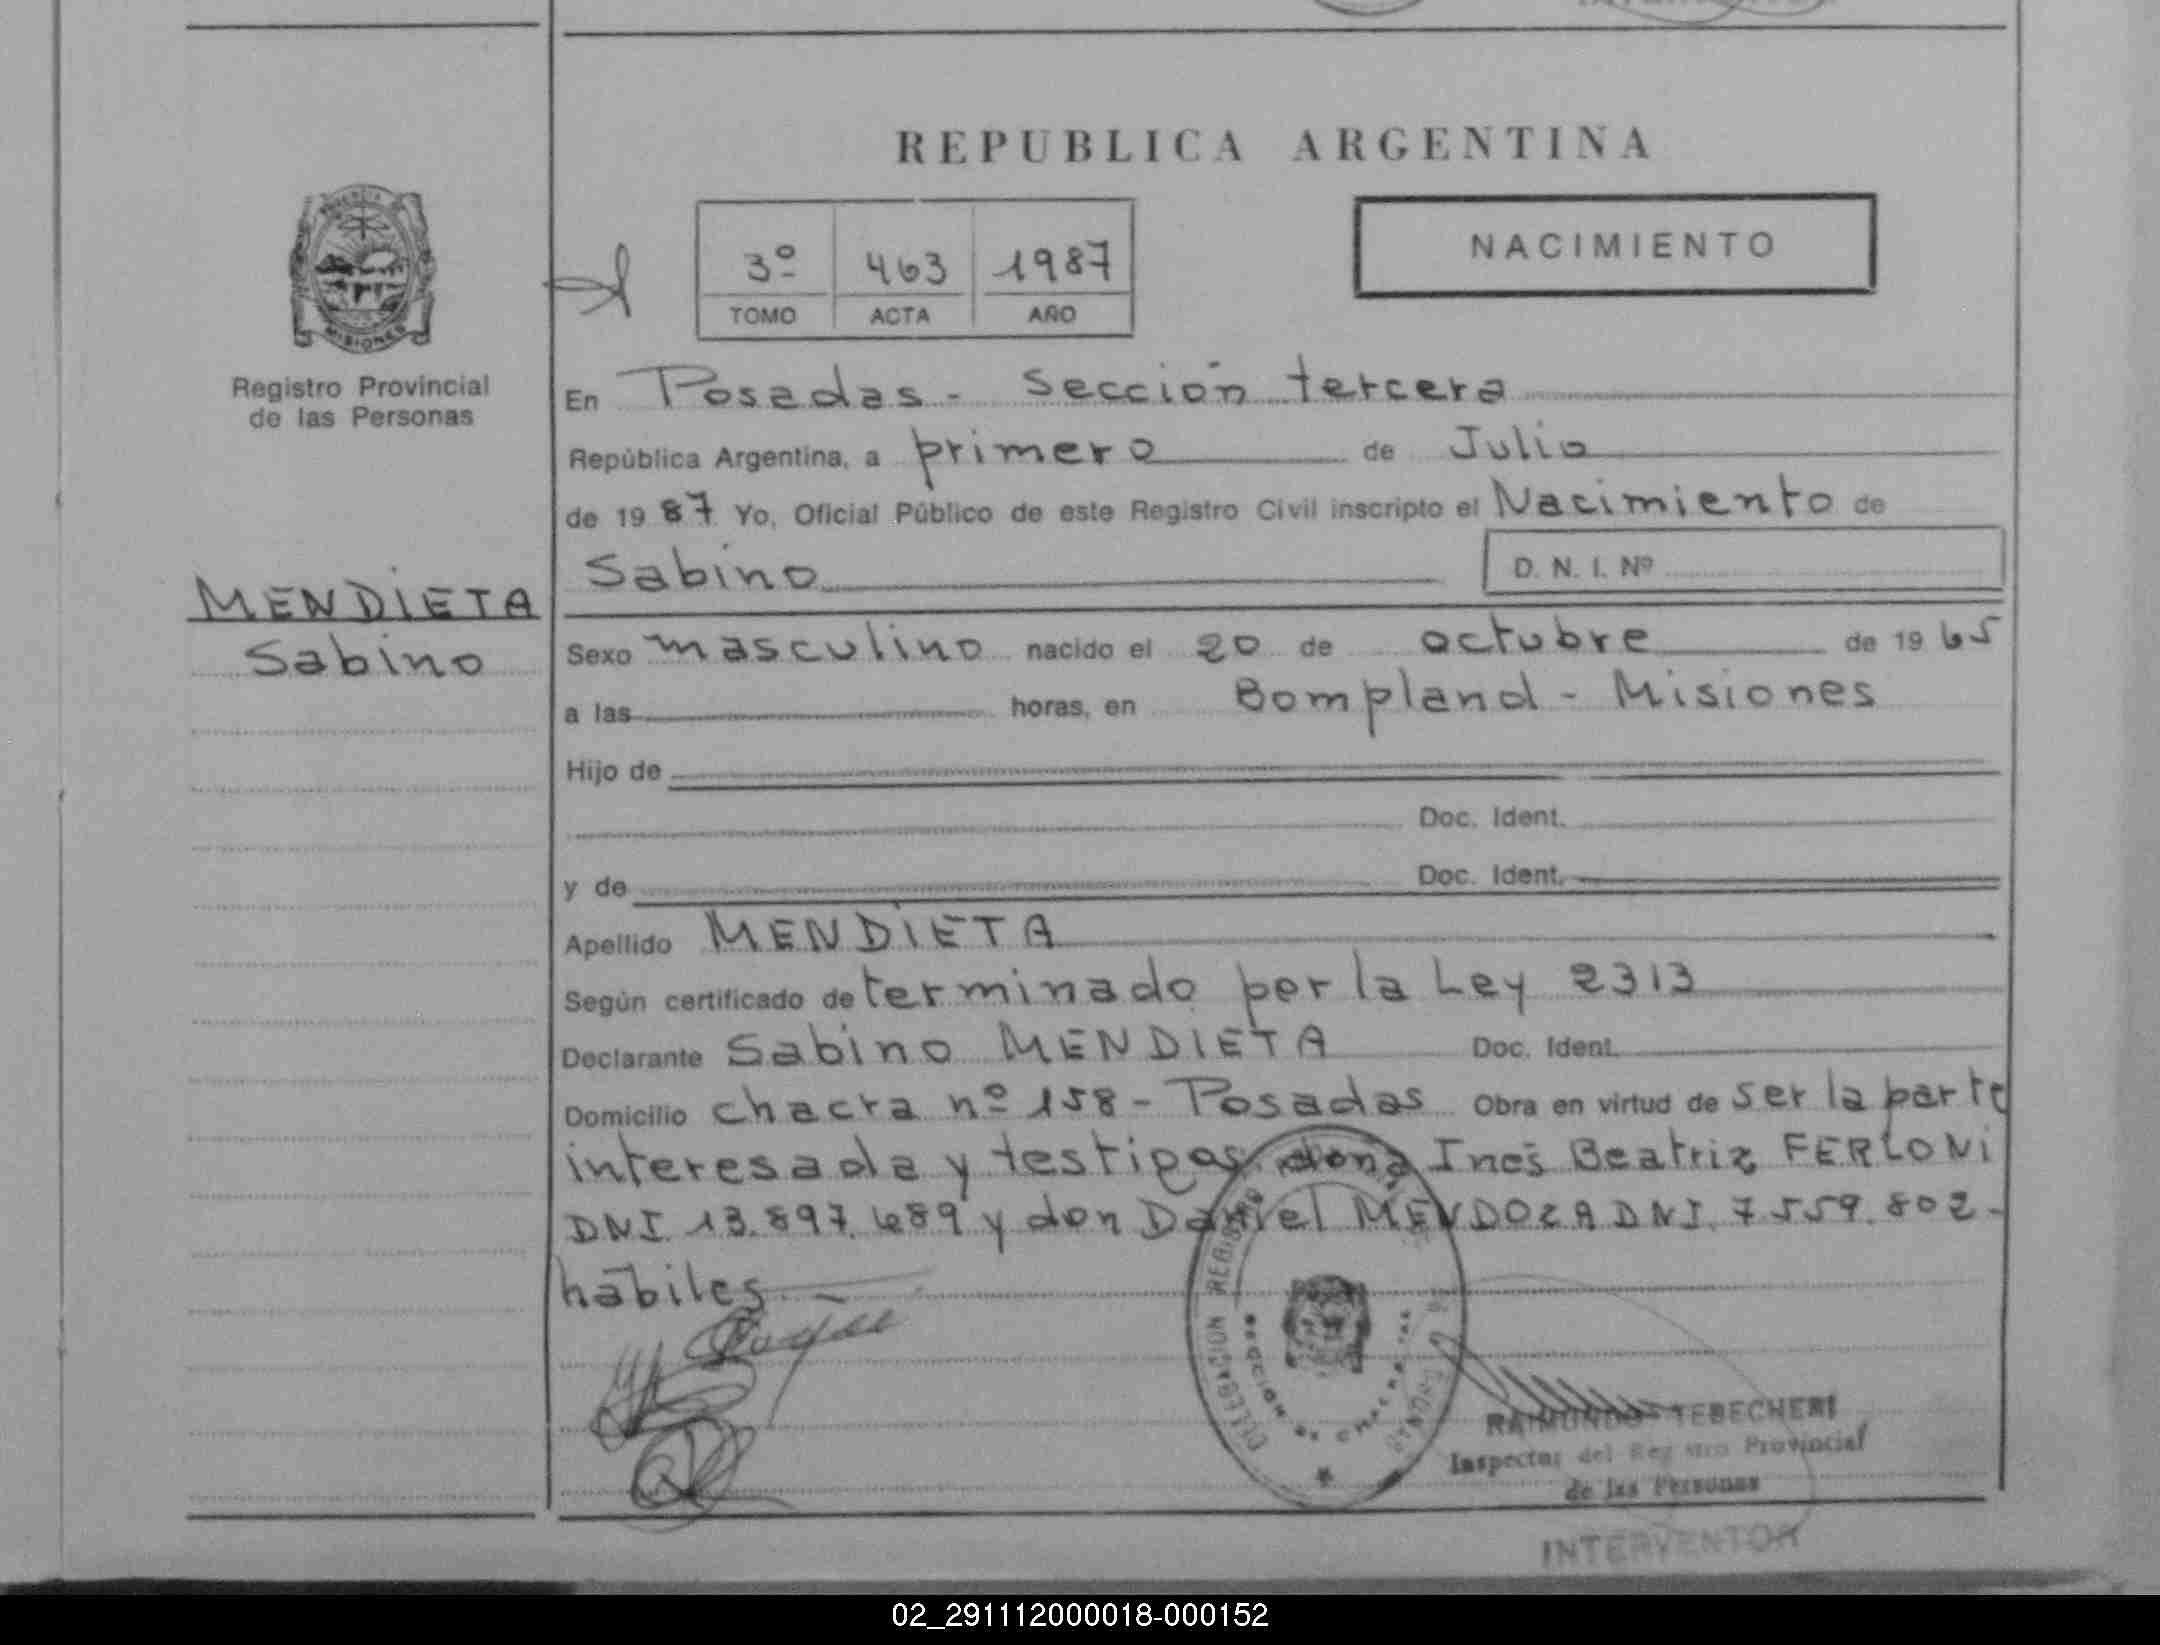 REPUBLICA ARGENTINA
PROVINCIA DE
MISIONES
Registro Provincial
de las Personas
3º 463 1987
TOMO ACTA AÑO
NACIMIENTO
En Posadas - Sección tercera
República Argentina, a primero de Julio
de 1987 Yo, Oficial Público de este Registro Civil inscripto el Nacimiento de
Sabino D. N. I. Nº
MENDIETA
Sabino
Sexo masculino nacido el 20 de octubre de 1965
a las horas, en Bompland - Misiones
Hijo de
Doc. Ident.
y de Doc. Ident.
Apellido MENDIETA
Según certificado determinado por la Ley 2313
Declarante Sabino MENDIETA Doc. Ident.
Domicilio chacra nº 158 - Posadas Obra en virtud de ser la parte
interesada y testigos doña Inés Beatriz FERLONI
DNI 13.897.689 y don Daniel MENDOZA DNI. 7.559.802-
hábiles
DELEGACION REGISTRO
SECCION
RAIMUNDO TEBECHERI
Inspector del Registro Provincial
de las Personas
INTERVENTOR
02_291112000018-000152